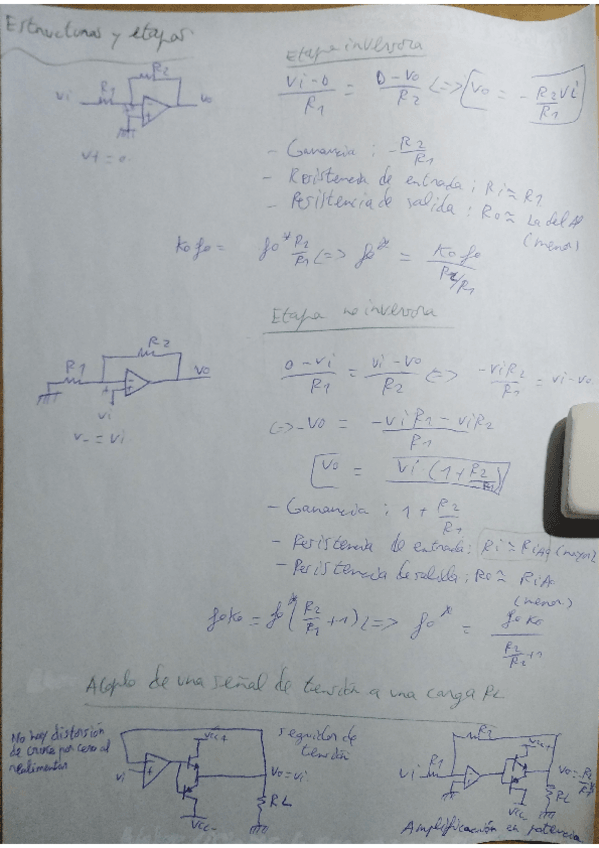 Estructuras y etapas
Etapa inversora
R2
R1
Vi
Vo
V+ = 0
(Vi-0)/R1 = (0-Vo)/R2 <=> Vo = -R2/R1 Vi
- Ganancia: -R2/R1
- Resistencia de entrada: Ri ≈ R1
- Resistencia de salida: Ro ≈ La del AO
(menor)
Kofo = fo* R2/R1 <=> fo* = Kofo/(R2/R1)
Etapa no inversora
R2
R1
Vo
Vi
V- = Vi
(0-Vi)/R1 = (Vi-Vo)/R2 <=> -ViR2/R1 = Vi-Vo
<=> -Vo = (-ViR1-ViR2)/R1
Vo = Vi·(1+R2/R1)
- Ganancia: 1+R2/R1
- Resistencia de entrada: Ri ≈ RiAo (mayor)
- Resistencia de salida: Ro ≈ RiAo
(menor)
foKo = fo*(R2/R1+1) <=> fo* = foKo/(R2/R1+1)
Acoplo de una señal de tensión a una carga RL
No hay distorsión
de cruce por cero al
realimentar
Vi
Vcc+
Vcc-
seguidor de
tensión
Vo=Vi
RL
R2
R1
Vi
Vcc+
Vcc-
RL
Amplificación en potencia